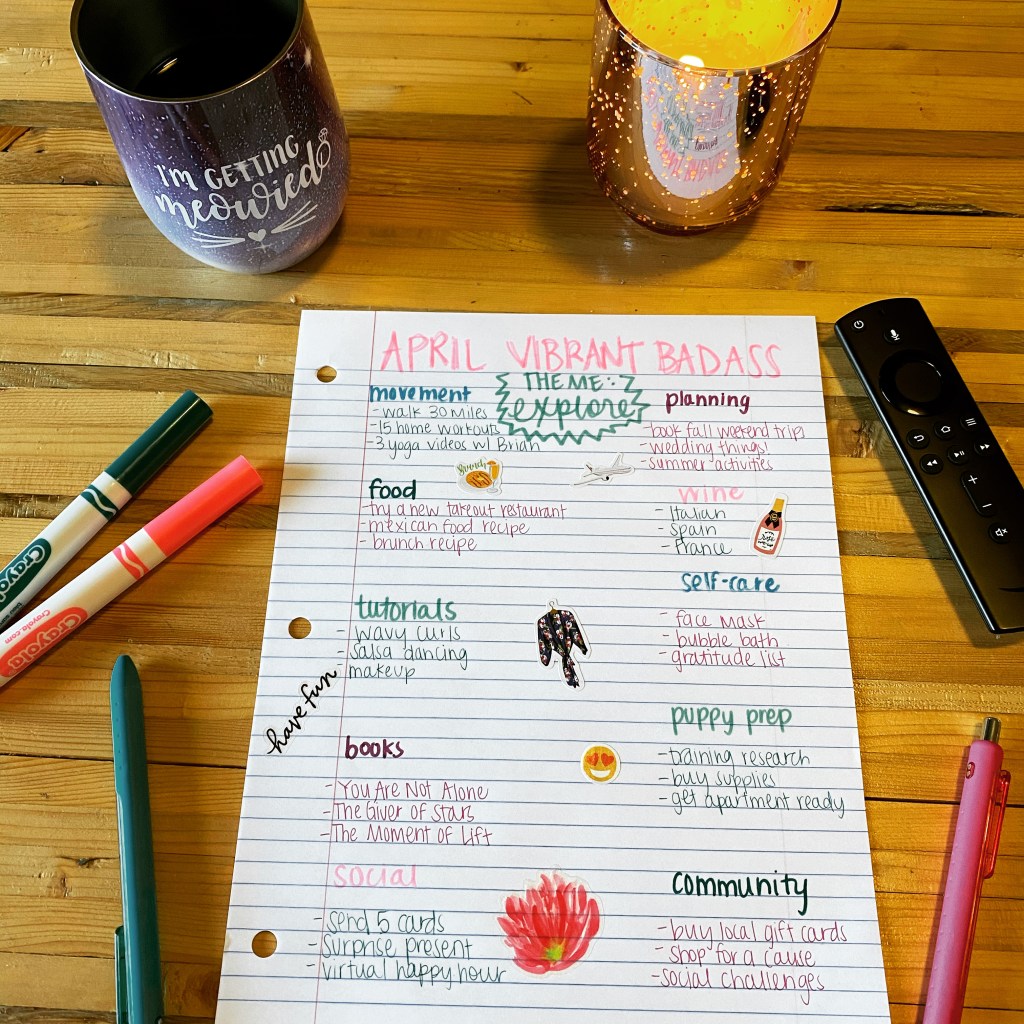 I'M GETTING
meowied
APRIL VIBRANT BADASS
THEME:
explore
movement
-walk 30 miles
-15 home workouts
-3 yoga videos w/ Brian
planning
-book fall weekend trips
-wedding things!
-summer activities
Brunch
food
-try a new takeout restaurant
-mexican food recipe
-brunch recipe
wine
-Italian
-Spain
-France
self-care
-face mask
-bubble bath
-gratitude list
tutorials
-wavy curls
-salsa dancing
-makeup
have fun
books
-You Are Not Alone
-The Giver of Stars
-The Moment of Lift
puppy prep
-training research
-buy supplies
-get apartment ready
social
-send 5 cards
-surprise present
-virtual happy hour
community
-buy local gift cards
-shop for a cause
-social challenges
Crayola
Crayola
Crayola.com